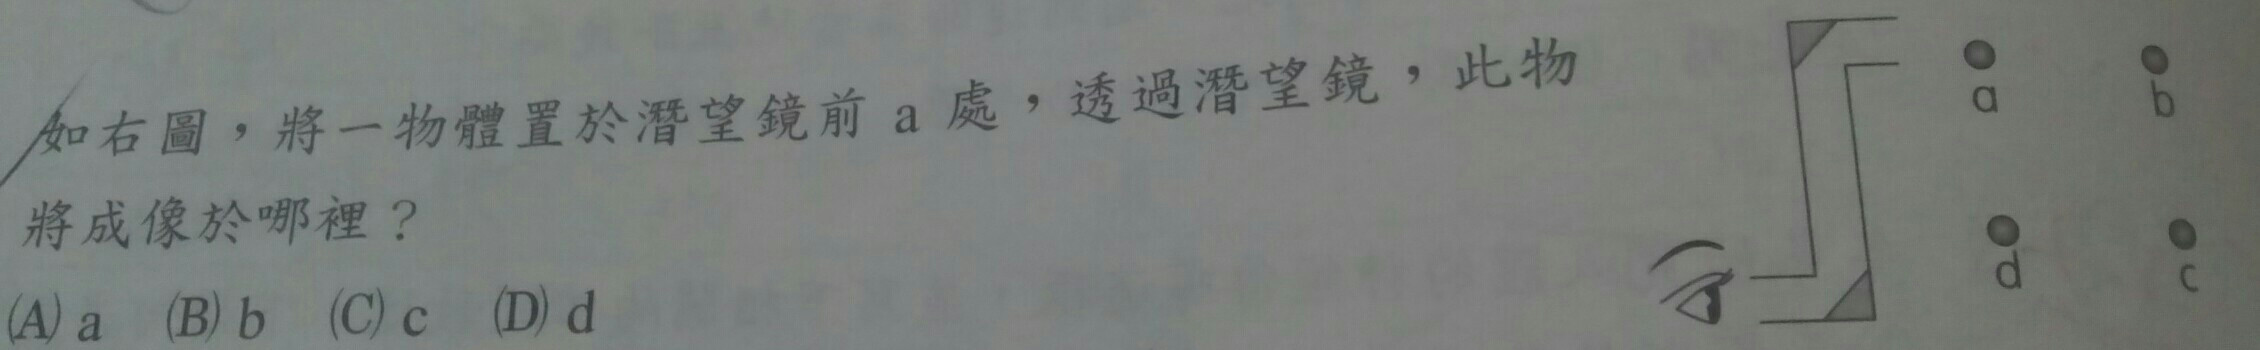 如右圖，將一物體置於潛望鏡前 a 處，透過潛望鏡，此物
將成像於哪裡？
(A) a (B) b (C) c (D) d
a b
d c